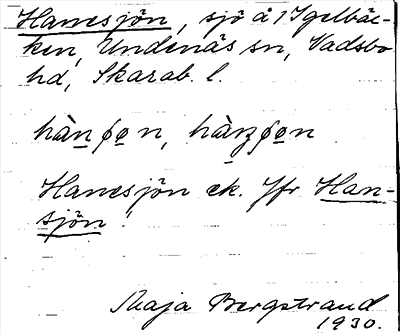 Hanesjön, sjö å 1 Igelbäc-
ken, Undenäs sn, Vadsbo
hd, Skarab. l.
Hanesjön ek. Jfr Han-
sjön!
Maja Bergstrand
1930.